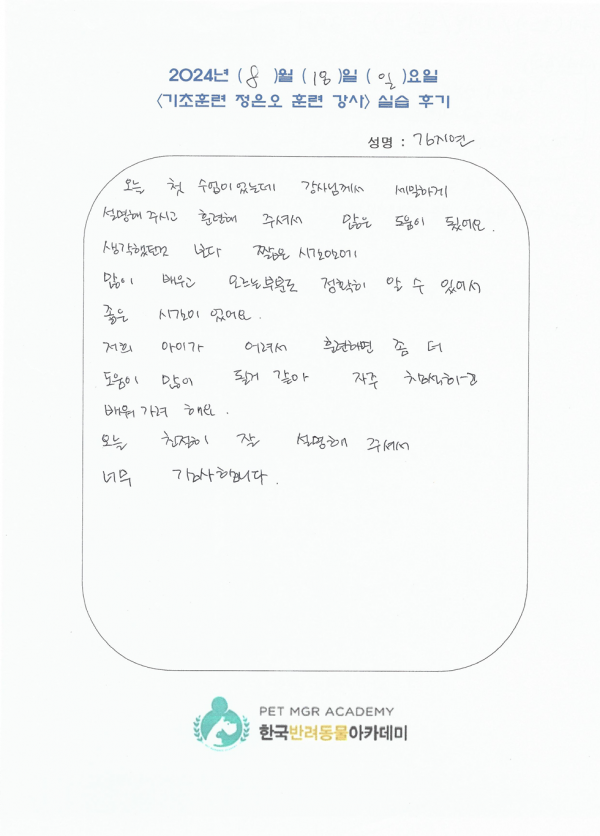 2024년 ( 8 )월 ( 18 )일 ( 일 )요일
<기초훈련 정은오 훈련 강사> 실습 후기
성명 : 김지연
오늘 첫 수업이었는데 강사님께서 세밀하게
설명해 주시고 훈련해 주셔서 많은 도움이 됬어요.
생각했던것 보다 짧은 시간이였는데
많이 배우고 모르는부분도 정확히 알 수 있어서
좋은 시간이 었어요.
저희 아이가 어려서 훈련하면 좀 더
도움이 많이 될거 같아 자주 참석하고
배워가려 해요.
오늘 친절히 잘 설명해 주셔서
너무 감사합니다.
PET MGR ACADEMY
한국반려동물아카데미